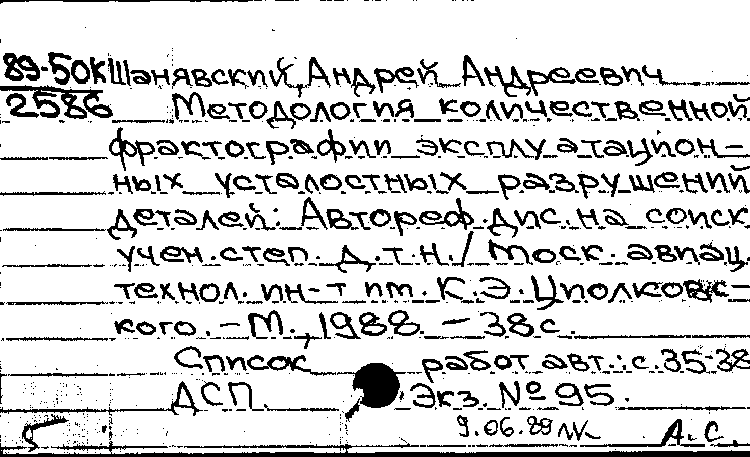 89-50К Шанявский, Андрей Андреевич
2586 Методология количественной
фрактографии эксплуатацион-
ных усталостных разрушений
деталей: Автореф. дис. на соиск
учен. степ. д.т.н. / Моск. авиац.
технол. ин-т им. К.Э. Циолковс-
кого. - М., 1988. - 38с.
Список работ авт.: с. 35-38
ДСП. Экз. № 95.
9.06.89
5 А.С.